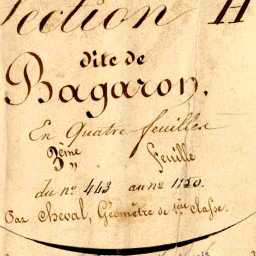 Section H
dite de
Bagaron.
En Quatre feuilles
2ème Feuille
du nº 443 au nº 1120.
Par Cheval, Géomètre de 1ère classe.